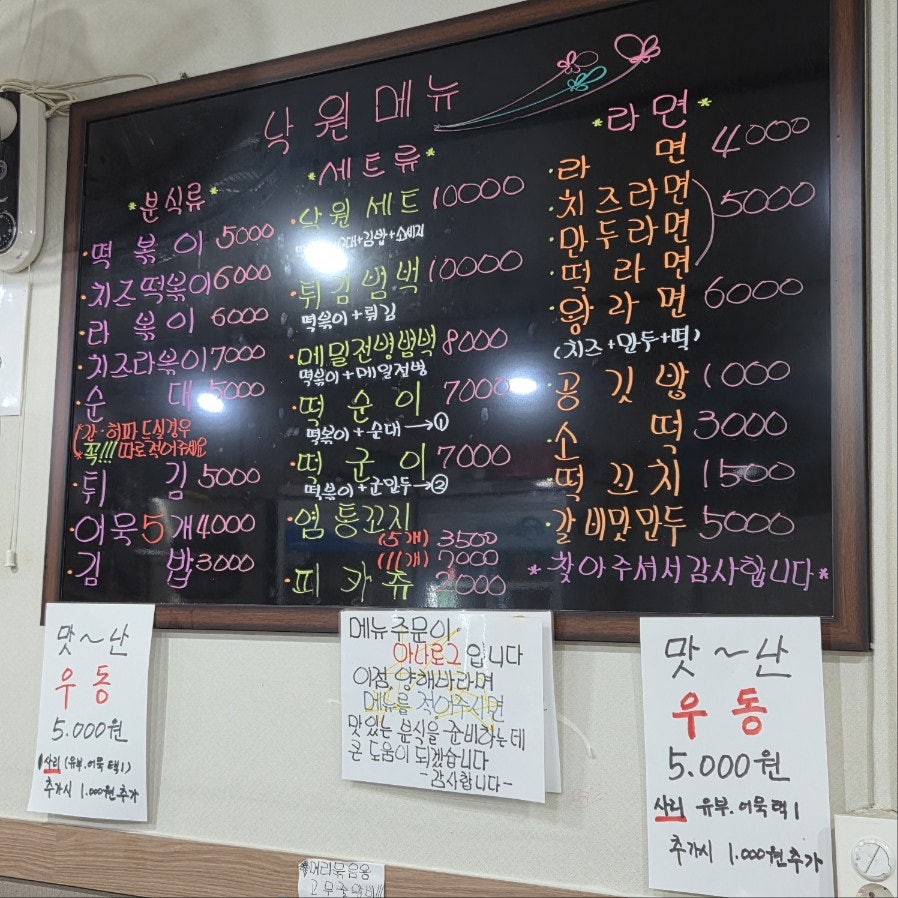 낙원메뉴
*분식류*
·떡볶이 5000
·치즈떡볶이 6000
·라볶이 6000
·치즈라볶이 7000
·순대 5000
(간·허파 드실경우
*꼭!!! 따로적어주세요
·튀김 5000
·어묵5개 4000
·김밥 3000
*세트류*
·낙원세트 10000
대+김밥+소세지
·튀김범벅 10000
떡볶이+튀김
·메밀전병범벅 8000
떡볶이+메밀전병
·떡순이 7000
떡볶이+순대→①
·떡군이 7000
떡볶이+군만두→②
·염통꼬지
(5개) 3500
(11개) 7000
·피카츄 2000
*라면*
·라면 4000
·치즈라면
·만두라면 5000
·떡라면
·왕라면 6000
(치즈+만두+떡)
·공깃밥 1000
·소떡 3000
·떡끄치 1500
·갈비맛만두 5000
*찾아주셔서감사합니다*
맛~난
우동
5.000원
사리 (유부.어묵택1)
추가시 1.000원추가
메뉴주문이
아나로그입니다
이점 양해바라며
메뉴를 적어주시면
맛있는 분식을 준비하는데
큰 도움이 되겠습니다
-감사합니다-
맛~난
우동
5.000원
사리 유부.어묵택1
추가시 1.000원추가